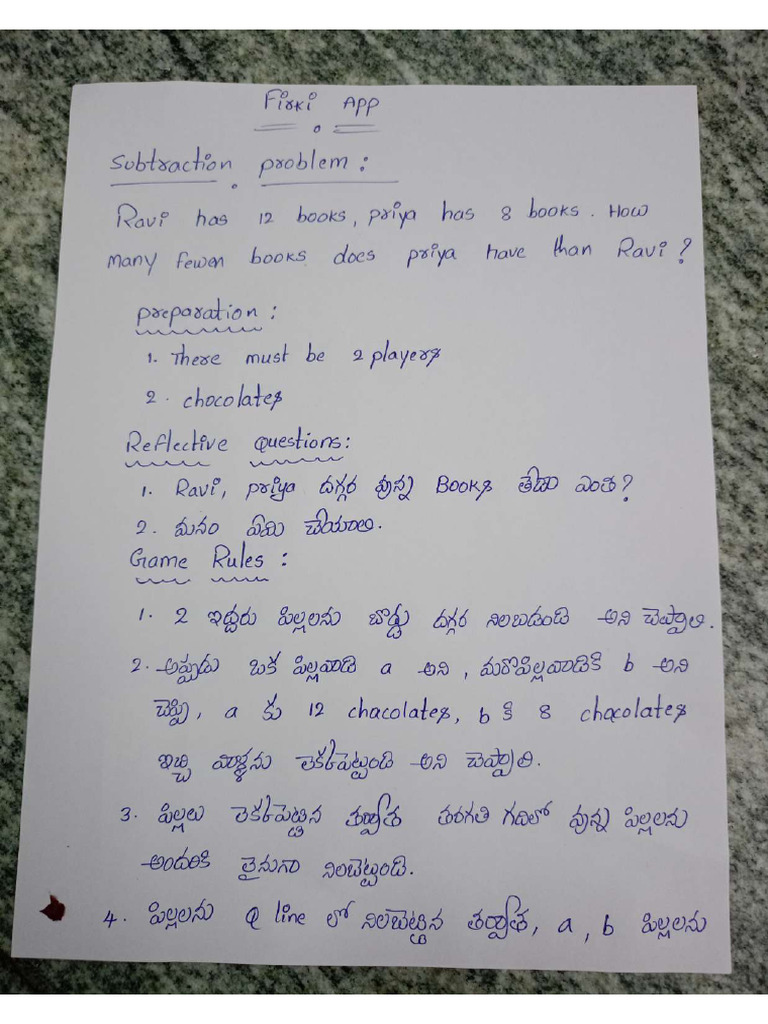 Firki App
Subtraction problem :
Ravi has 12 books, priya has 8 books. How
many fewer books does priya have than Ravi ?
preparation :
1. There must be 2 players
2. chocolates
Reflective Questions:
1. Ravi, priya దగ్గర వున్న Books తేడా ఎంత?
2. మనం ఏమి చేయాలి.
Game Rules :
1. 2 ఇద్దరు పిల్లలను బోర్డు దగ్గర నిలబడండి అని చెప్పాలి.
2. అప్పుడు ఒక పిల్లవాడి a అని, మరొపిల్లవాడికి b అని
చెప్పి, a కు 12 chacolates, b కి 8 chacolates
ఇచ్చి వీళ్ళను లెక్కపెట్టండి అని చెప్పాలి.
3. పిల్లలు లెక్కపెట్టిన తర్వాత తరగతి గదిలో వున్న పిల్లలను
అందరికి లైనుగా నిలబెట్టండి.
4. పిల్లలను Q line లో నిలబెట్టిన తర్వాత, a, b పిల్లలను